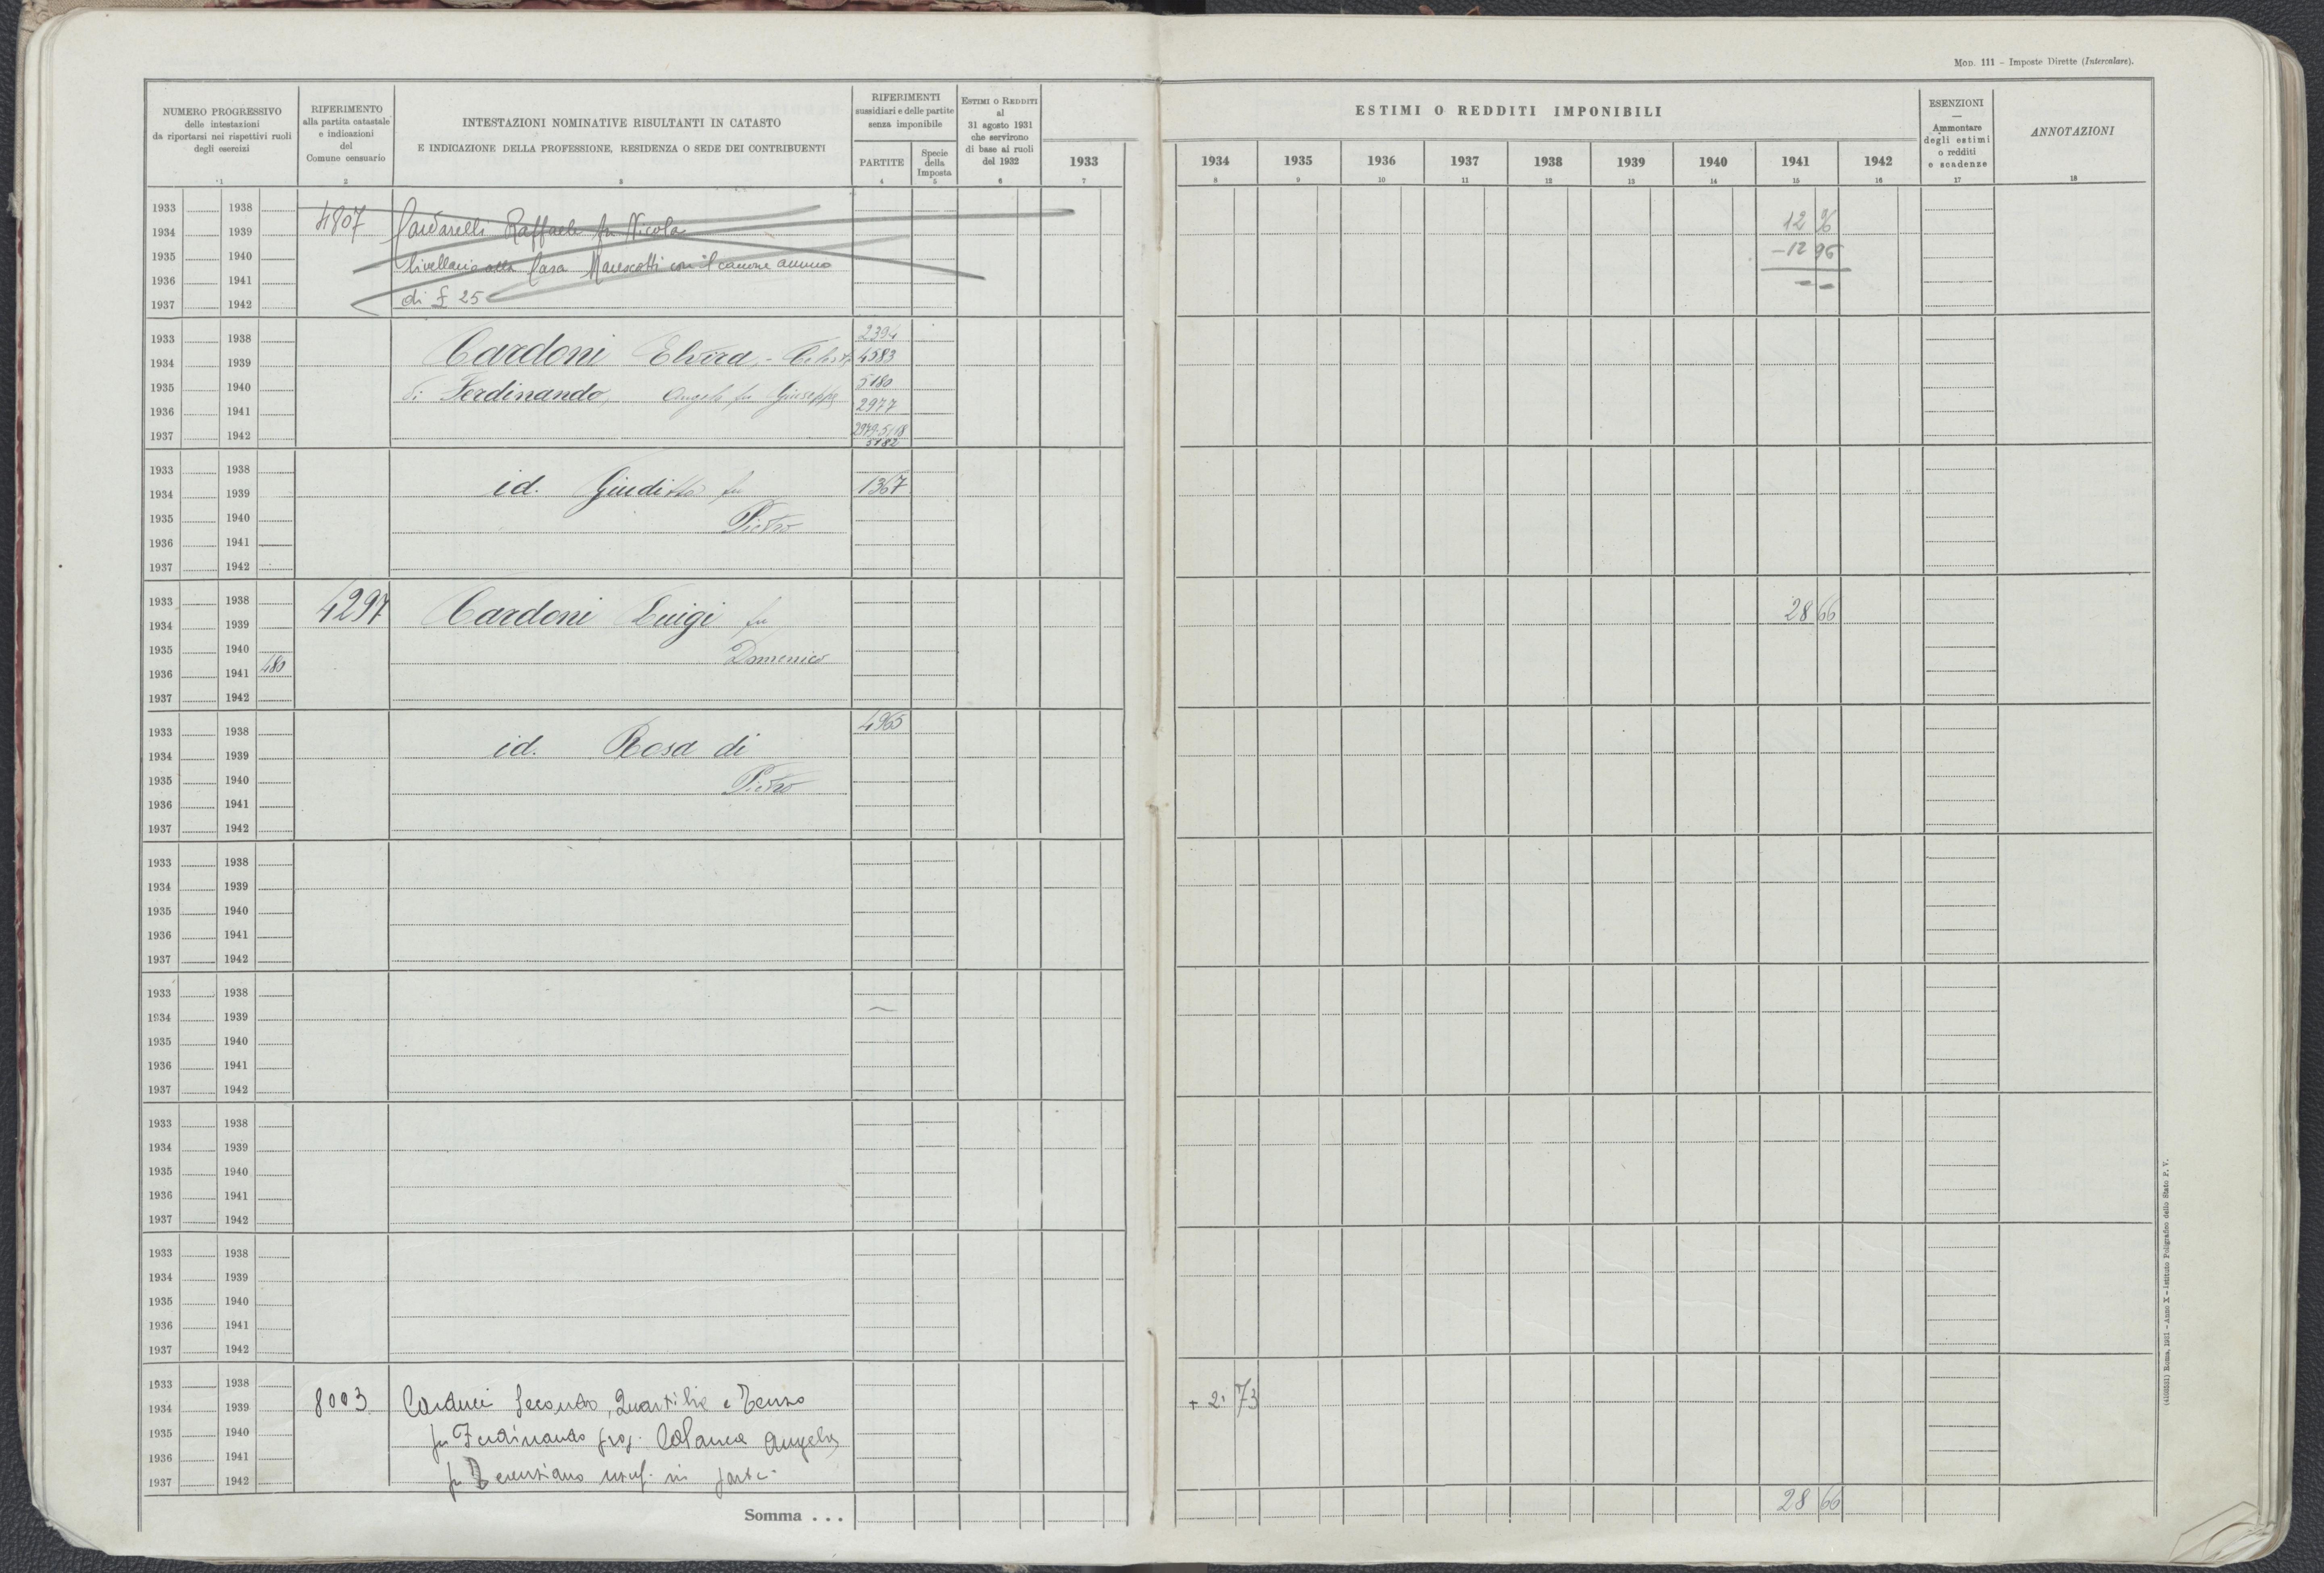 Mod. 111 – Imposte Dirette (Intercalare).
NUMERO PROGRESSIVO
delle intestazioni
da riportarsi nei rispettivi ruoli
degli esercizi
1
RIFERIMENTO
alla partita catastale
e indicazioni
del
Comune censuario
2
INTESTAZIONI NOMINATIVE RISULTANTI IN CATASTO
E INDICAZIONE DELLA PROFESSIONE, RESIDENZA O SEDE DEI CONTRIBUENTI
3
RIFERIMENTI
sussidiari e delle partite
senza imponibile
PARTITE
4
Specie
della
Imposta
5
Estimi o Redditi
al
31 agosto 1931
che servirono
di base ai ruoli
del 1932
6
ESTIMI O REDDITI IMPONIBILI
1933 1934 1935 1936 1937 1938 1939 1940 1941 1942
7 8 9 10 11 12 13 14 15 16
ESENZIONI
—
Ammontare
degli estimi
o redditi
e scadenze
17
ANNOTAZIONI
18
1933 1938
1934 1939 4807 Cardarelli Raffaele fu Nicola 12 96
1935 1940 livellario alla Casa Marescotti con il canone annuo –12 96
1936 1941 – –
1937 1942 di £ 25
1933 1938 2394
1934 1939 Cardoni Elvira, - Celeste 4583
1935 1940 di Ferdinando, Angela fu Giuseppe 5180
1936 1941 2977
1937 1942 2979-5118
5182
1933 1938
1934 1939 id. Giuditta fu 1367
1935 1940 Pietro
1936 1941
1937 1942
1933 1938
1934 1939 4297 Cardoni Luigi fu 28 66
1935 1940 Domenico
1936 1941 480
1937 1942
1933 1938 4965
1934 1939 id. Rosa di
1935 1940 Pietro
1936 1941
1937 1942
1933 1938
1934 1939
1935 1940
1936 1941
1937 1942
1933 1938
1934 1939
1935 1940
1936 1941
1937 1942
1933 1938
1934 1939
1935 1940
1936 1941
1937 1942
1933 1938
1934 1939
1935 1940
1936 1941
1937 1942
1933 1938
1934 1939 8003 Carducci Secondo, Quartilia e Terzo + 2. 73
1935 1940 fu Ferdinando prop. Angela
1936 1941
1937 1942 fu usuf. in parte
Somma . . . 28 66
(4103531) Roma, 1931 – Anno X – Istituto Poligrafico dello Stato P. V.